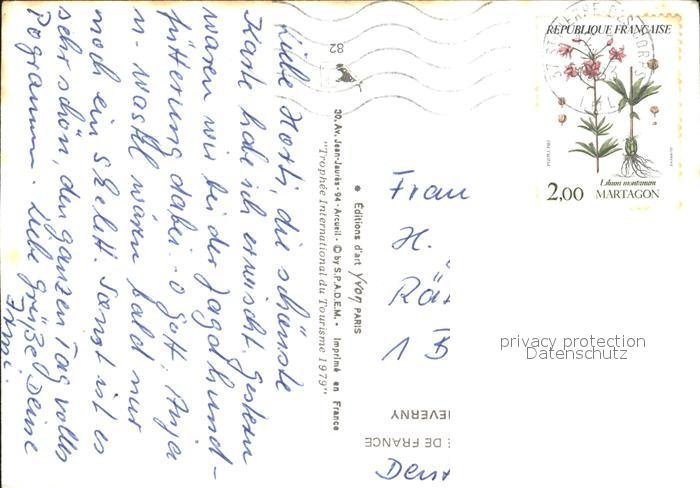 Liebe Horti, die schönste
Karte habe ich erwischt. Gestern
waren wir bei der Jagdhund-
fütterung dabei. O Gott. Anja
u. Wastl wären bald nur
noch ein Skelett. Sonst ist es
sehr schön, den ganzen Tag volles
Programm. Liebe Grüße Deine
Irmi.
82
30, Av. Jean-Jaurès - 94 - Arcueil - © by S.P.A.D.E.M. - Imprimé en France
"Trophée International du Tourisme 1979"
Editions d'art YVON PARIS
RÉPUBLIQUE FRANÇAISE
Lilium montanum
2,00 MARTAGON
Frau
H.
Rä
1 B
privacy protection
Datenschutz
HEVERNY
E DE FRANCE